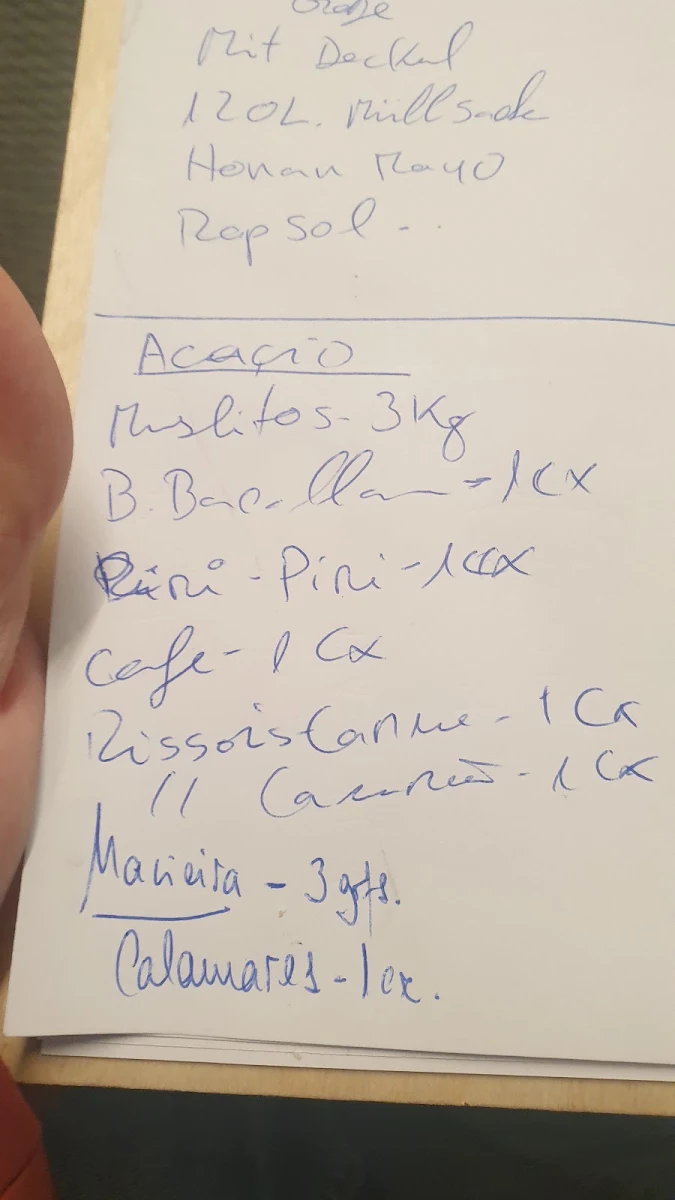 Mit Deckel
120L. Müllsack
Honan Mayo
Rapsol - ..
Acação
Muslitos - 3Kg
B. Bacallau - 1 CX
Piri - Piri - 1 CX
Cafe - 1 Cx
Rissois Carne - 1 Cx
// Camarão - 1 Cx
Macieira - 3 gfs.
Calamares - 1 cx.